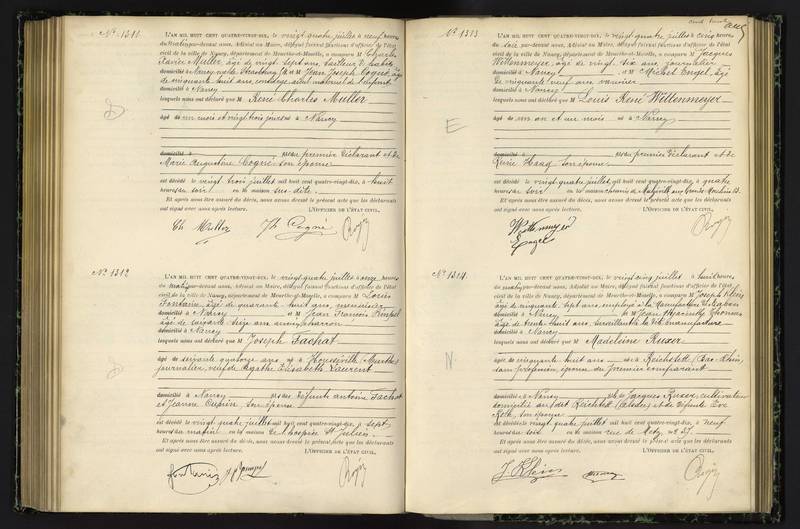 N° 1311
L'AN MIL HUIT CENT QUATRE-VINGT-DIX, le vingt quatre juillet à neuf heures
du matin par-devant nous, Adjoint au Maire, délégué faisant fonctions d'officier de l'état
civil de la ville de Nancy, département de Meurthe-et-Moselle, a comparu M Charles
Xavier Muller, âgé de vingt sept ans, tailleur d'habits
domicilié à Nancy, et M Jean Joseph Cogné, âgé
de cinquante huit ans, aïeul maternel de l'enfant
domicilié à Nancy
lesquels nous ont déclaré que M René Charles Muller
âgé de un mois et vingt trois jours né à Nancy
domicilié à fils au premier déclarant et de
Marie Augustine Cogné son épouse
est décédé le vingt trois juillet mil huit cent quatre-vingt-dix, à huit
heures du soir en la maison sus-dite
Et après nous être assuré du décès, nous avons dressé le présent acte que les déclarants
ont signé avec nous après lecture. L'OFFICIER DE L'ÉTAT CIVIL,
Ch Muller
Cogné
N° 1312
L'AN MIL HUIT CENT QUATRE-VINGT-DIX, le vingt quatre juillet à onze heures
du matin par-devant nous, Adjoint au Maire, délégué faisant fonctions d'officier de l'état
civil de la ville de Nancy, département de Meurthe-et-Moselle, a comparu M Louis
Fontaine, âgé de quarante huit ans, menuisier
domicilié à Nancy et M Jean François
âgé de soixante seize ans, ancien charron
domicilié à Nancy
lesquels nous ont déclaré que M Joseph Fachat
âgé de soixante quatorze ans né à Housséville (Meurthe)
journalier, veuf de Agathe Elisabeth Laurent
domicilié à Nancy fils de défunts Antoine Fachat
et Jeanne son épouse
est décédé le vingt quatre juillet mil huit cent quatre-vingt-dix, à sept
heures du matin en la maison de l'hospice St Julien
Et après nous être assuré du décès, nous avons dressé le présent acte que les déclarants
ont signé avec nous après lecture. L'OFFICIER DE L'ÉTAT CIVIL,
N° 1313
L'AN MIL HUIT CENT QUATRE-VINGT-DIX, le vingt quatre juillet à cinq heures
du soir par-devant nous, Adjoint au Maire, délégué faisant fonctions d'officier de l'état
civil de la ville de Nancy, département de Meurthe-et-Moselle, a comparu M Jacques
Wittenmeyer, âgé de vingt six ans, journalier
domicilié à Nancy et M Michel Engel, âgé
de cinquante neuf ans
domicilié à Nancy
lesquels nous ont déclaré que M Louis René Wittenmeyer
âgé de un an et un mois né à Nancy
domicilié à fils au premier déclarant et de
Haag son épouse
est décédé le vingt quatre juillet mil huit cent quatre-vingt-dix, à quatre
heures du soir en la maison chemin de Malzéville aux Grands Moulins
Et après nous être assuré du décès, nous avons dressé le présent acte que les déclarants
ont signé avec nous après lecture. L'OFFICIER DE L'ÉTAT CIVIL,
Wittenmeyer
Engel
E
N° 1314
L'AN MIL HUIT CENT QUATRE-VINGT-DIX, le vingt cinq juillet à huit heures
du matin par-devant nous, Adjoint au Maire, délégué faisant fonctions d'officier de l'état
civil de la ville de Nancy, département de Meurthe-et-Moselle, a comparu M Joseph Kleins
âgé de cinquante sept ans, employé à la Manufacture de tabac
domicilié à Nancy et M Jean Hyacinthe Thomas
âgé de trente huit ans, surveillant à la dite manufacture
domicilié à Nancy
lesquels nous ont déclaré que M Madeleine Ruxer
âgée de cinquante huit ans née à Reichstett (Bas-Rhin)
sans profession, épouse du premier comparant
domiciliée à Nancy fille de Jacques Ruxer, cultivateur
domicilié au dit Reichstett et de défunte Eve
Roth, son épouse
est décédée le vingt quatre juillet mil huit cent quatre-vingt-dix, à neuf
heures du soir en la maison rue de Metz, n° 27
Et après nous être assuré du décès, nous avons dressé le présent acte que les déclarants
ont signé avec nous après lecture. L'OFFICIER DE L'ÉTAT CIVIL,
N